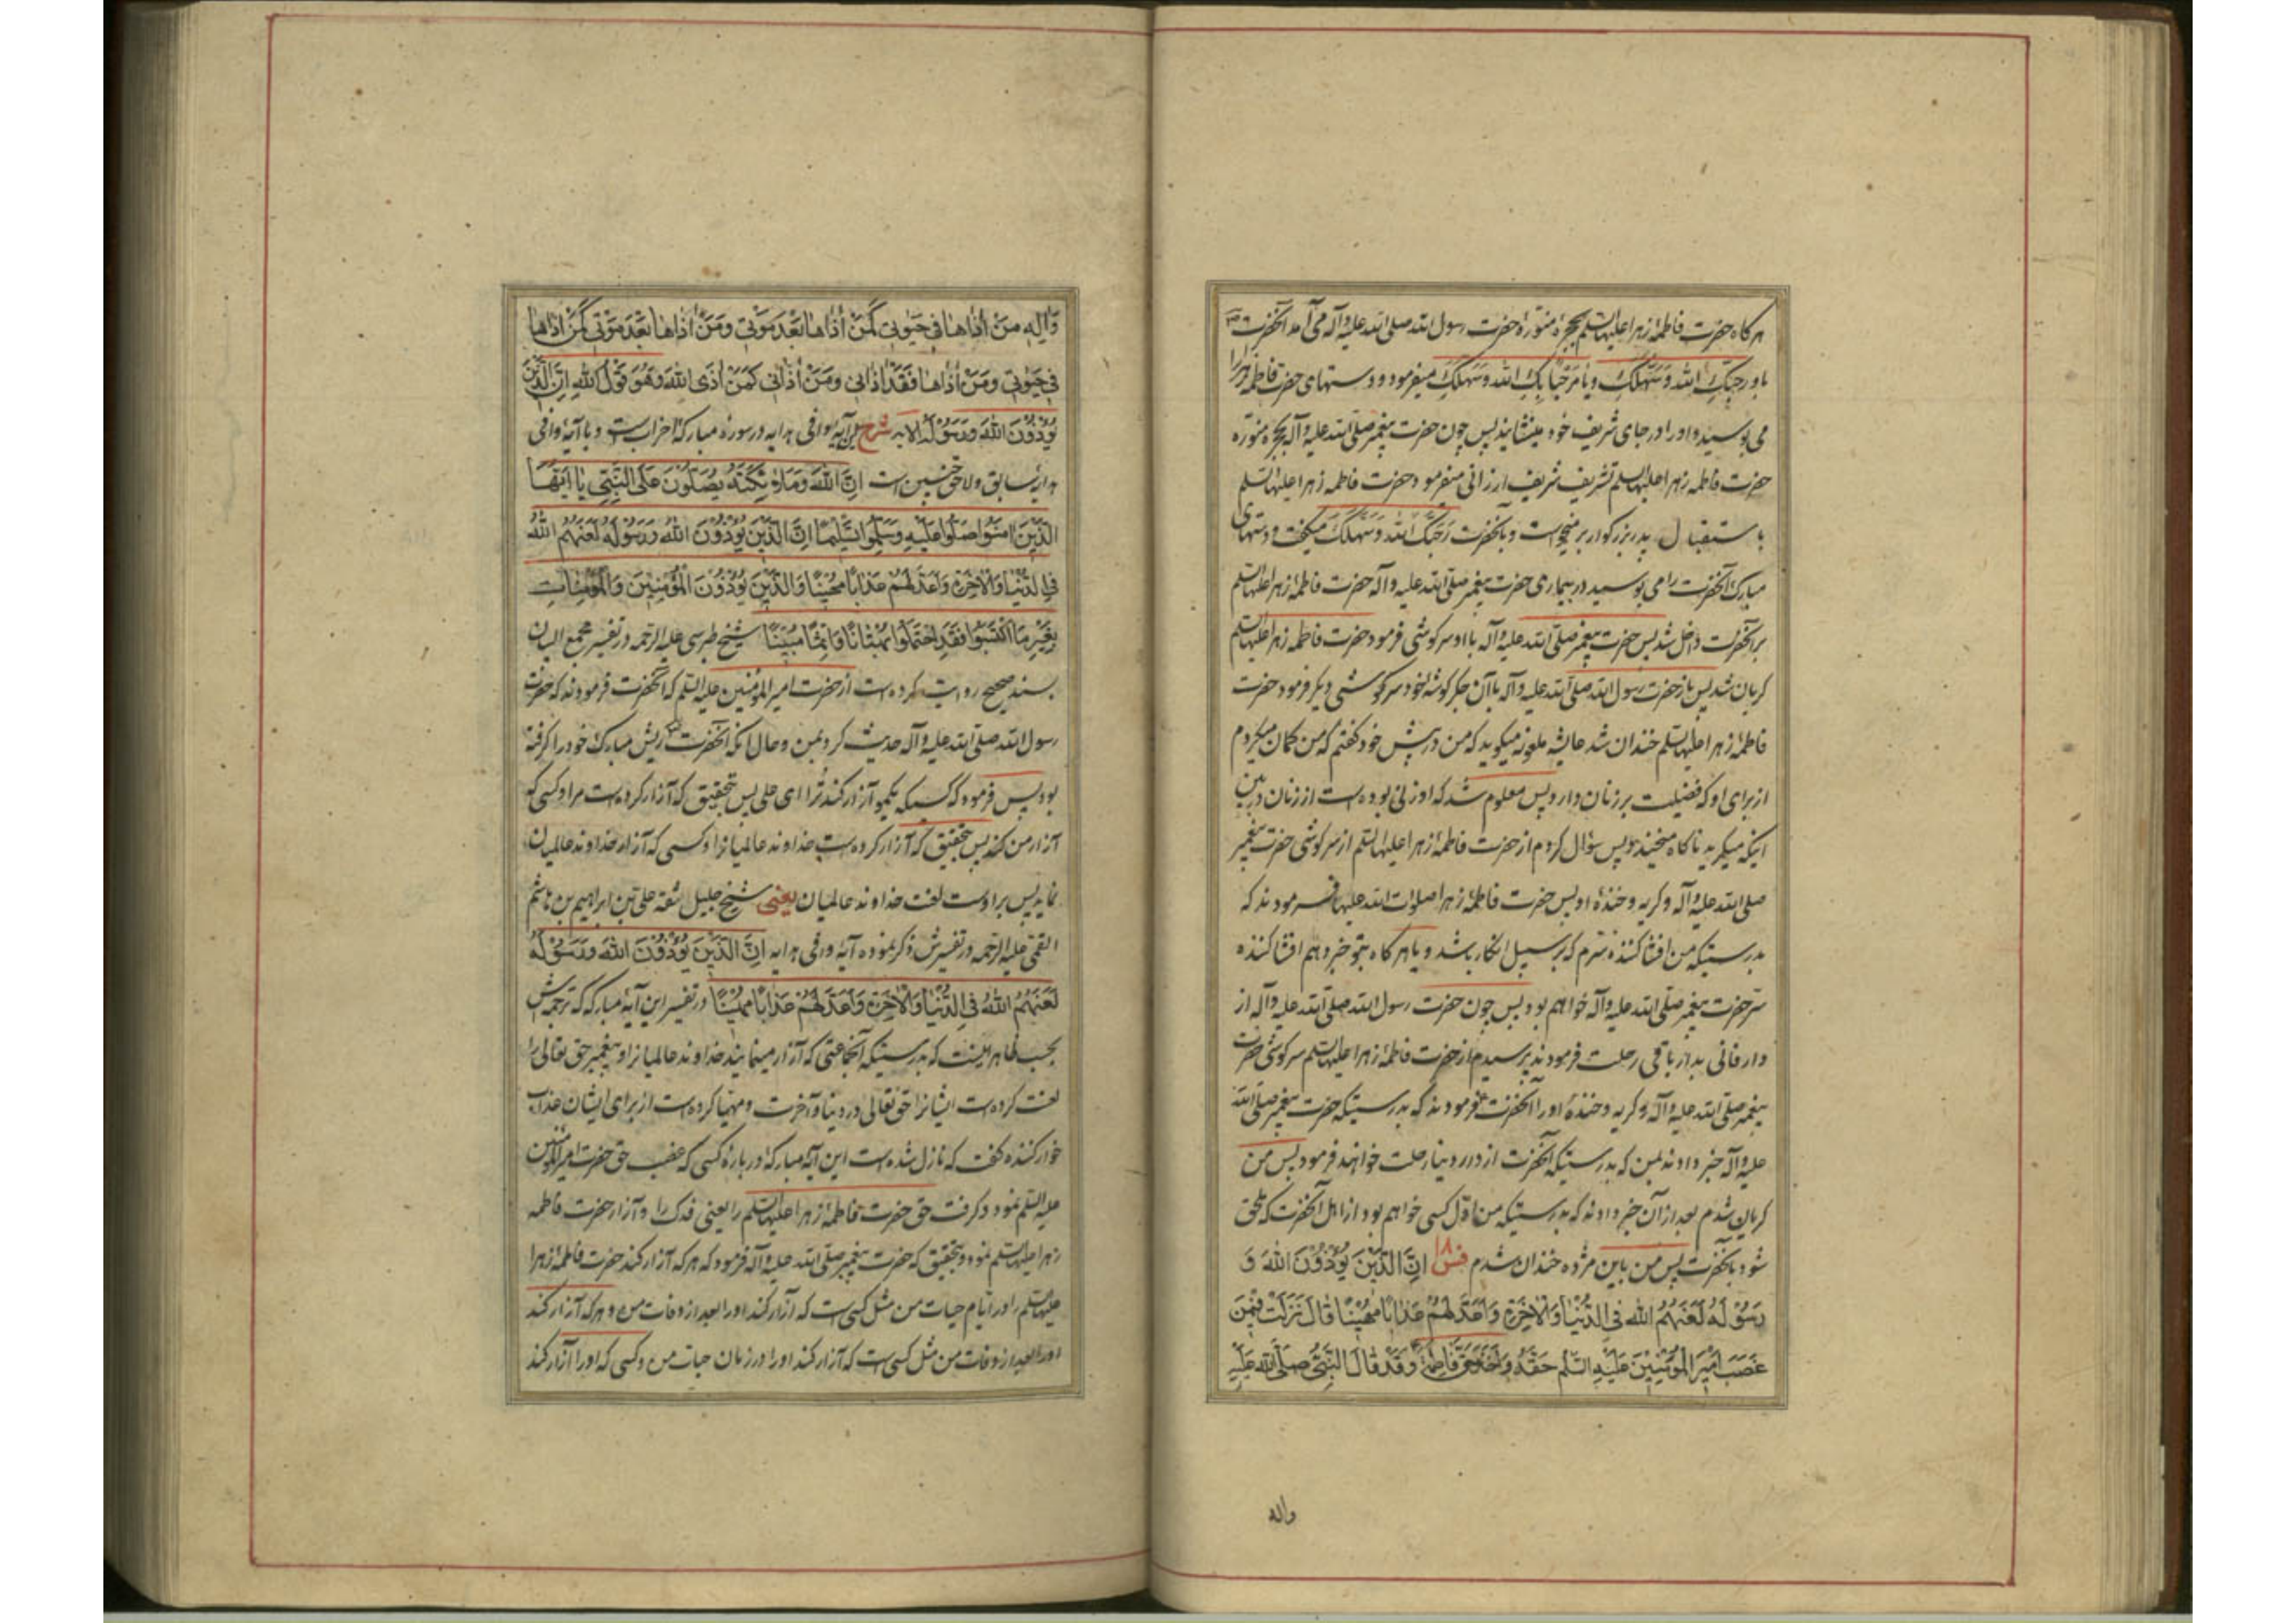 هرکاه حضرت فاطمهٔ زهرا علیها السلم بحجرهٔ منورهٔ حضرت رسول الله صلی الله علیه وآله می آمد آنحضرت
باو رحبک الله وسهلک ویا مرحبا بک الله وسهلک میفرمود و دستهای حضرت فاطمه زهرا را
می بوسید و او را در جای شریف خود مینشانید پس چون حضرت پیغمبر صلی الله علیه وآله بحجره منوره
حضرت فاطمه زهرا علیها السلم تشریف شریف ارزانی میفرمود حضرت فاطمه زهرا علیها السلم
باستقبال پدر بزرکوار بر میخواست وبآنحضرت رحبک الله وسهلک میکفت و دستهای
مبارک آنحضرت را می بوسید در بیماری حضرت پیغمبر صلی الله علیه وآله حضرت فاطمهٔ زهرا علیها السلم
بر آنحضرت داخل شد پس حضرت پیغمبر صلی الله علیه وآله با او سرکوشی فرمود حضرت فاطمه زهرا علیها السلم
کریان شد پس باز حضرت رسول الله صلی الله علیه وآله با آن جکرکوشهٔ خود سرکوشی دیکر فرمود حضرت
فاطمهٔ زهرا علیها السلم خندان شد عایشه ملعونه میکوید که من در پیش خود کفتم که من کمان میکردم
از برای او که فضیلت بر زنان دارد پس معلوم شد که او زنی بوده است از زنان در بین
اینکه میکرید ناکاه میخندد پس سؤال کردم از حضرت فاطمهٔ زهرا علیها السلم از سرکوشی حضرت پیغمبر
صلی الله علیه وآله وکریه وخندهٔ او پس حضرت فاطمهٔ زهرا صلوات الله علیها فرمودند که
بدرستیکه من افشا کننده سرم که بر سبیل انکار باشد ویا هرکاه بتو خبر دهم افشا کننده
سر حضرت پیغمبر صلی الله علیه وآله خواهم بود پس چون حضرت رسول الله صلی الله علیه وآله از
دار فانی بدار باقی رحلت فرمودند پرسیدم از حضرت فاطمهٔ زهرا علیها السلم سرکوشی حضرت
پیغمبر صلی الله علیه وآله وکریه وخندهٔ او را آنحضرت فرمودند که بدرستیکه حضرت پیغمبر صلی الله
علیه وآله خبر دادند بمن که بدرستیکه آنحضرت از دار دنیا رحلت خواهند فرمود پس من
کریان شدم بعد از آن خبر دادند که بدرستیکه من اول کسی خواهم بود از اهل آنحضرت که ملحق
شود بآنحضرت پس من باین مژده خندان شدم ان الذین یؤذون الله و
رسوله لعنهم الله فی الدنیا والاخرة واعد لهم عذابا مهینا قال نزلت فیمن
غصب امیر المؤمنین علیه السلم حقه واخذ حق فاطمة وقد قال النبی صلی الله علیه
واله
وآله من اذاها فی حیوتی کمن أذاها بعد موتی ومن أذاها بعد موتی کمن اذاها
فی حیوتی ومن أذاها فقد اذانی ومن أذانی کمن اذی الله وهو قول الله ان الذین
یؤذون الله ورسوله الایه شرح این آیهٔ وافی هدایه در سورهٔ مبارکهٔ احزاب است و با آیهٔ وافی
هدایهٔ سابق ولاحق چنین است ان الله وملائکته یصلون علی النبی یا ایها
الذین امنوا صلوا علیه وسلموا تسلیما ان الذین یؤذون الله ورسوله لعنهم الله
فی الدنیا والاخرة واعد لهم عذابا مهینا والذین یؤذون المؤمنین والمؤمنات
بغیر ما اکتسبوا فقد احتملوا بهتانا واثما مبینا شیخ طبرسی علیه الرحمه در تفسیر مجمع البیان
بسند صحیح روایت کرده است از حضرت امیر المؤمنین علیه السلم که آنحضرت فرمودند که حضرت
رسول الله صلی الله علیه وآله حدیث کرد بمن وحال انکه آنحضرت ریش مبارک خود را کرفته
بود پس فرمود که کسیکه یکمو آزار کند ترا ای علی پس بتحقیق که آزار کرده است مرا وکسی که
آزار من کند پس بتحقیق که آزار کرده است خداوند عالمیانرا وکسی که آزار خداوند عالمیان
نماید پس بر اوست لعنت خداوند عالمیان یعنی شیخ جلیل الثقه علی بن ابراهیم بن هاشم
القمی علیه الرحمه در تفسیرش ذکر نموده آیهٔ وافی هدایه ان الذین یؤذون الله ورسوله
لعنهم الله فی الدنیا والاخرة واعد لهم عذابا مهینا در تفسیر این آیهٔ مبارکه که ترجمه اش
بحسب ظاهر اینست که بدرستیکه آنجماعتی که آزار مینمایند خداوند عالمیانرا وپیغمبر حق تعالی را
لعنت کرده است ایشانرا حق تعالی در دنیا وآخرت ومهیا کرده است از برای ایشان عذاب
خوار کننده کفت که نازل شده است این آیهٔ مبارکه در بارهٔ کسی که غصب حق حضرت امیر المؤمنین
علیه السلم نمود وکرفت حق حضرت فاطمهٔ زهرا علیها السلم را یعنی فدک را وآزار حضرت فاطمه
زهرا علیها السلم نمود وبتحقیق که حضرت پیغمبر صلی الله علیه وآله فرمود که هرکه آزار کند حضرت فاطمهٔ زهرا
علیها السلم را در ایام حیات من مثل کسی است که آزار کند او را بعد از وفات من و هرکه آزار کند
او را بعد از وفات من مثل کسی است که آزار کند او را در زمان حیات من وکسی که او را آزار کند